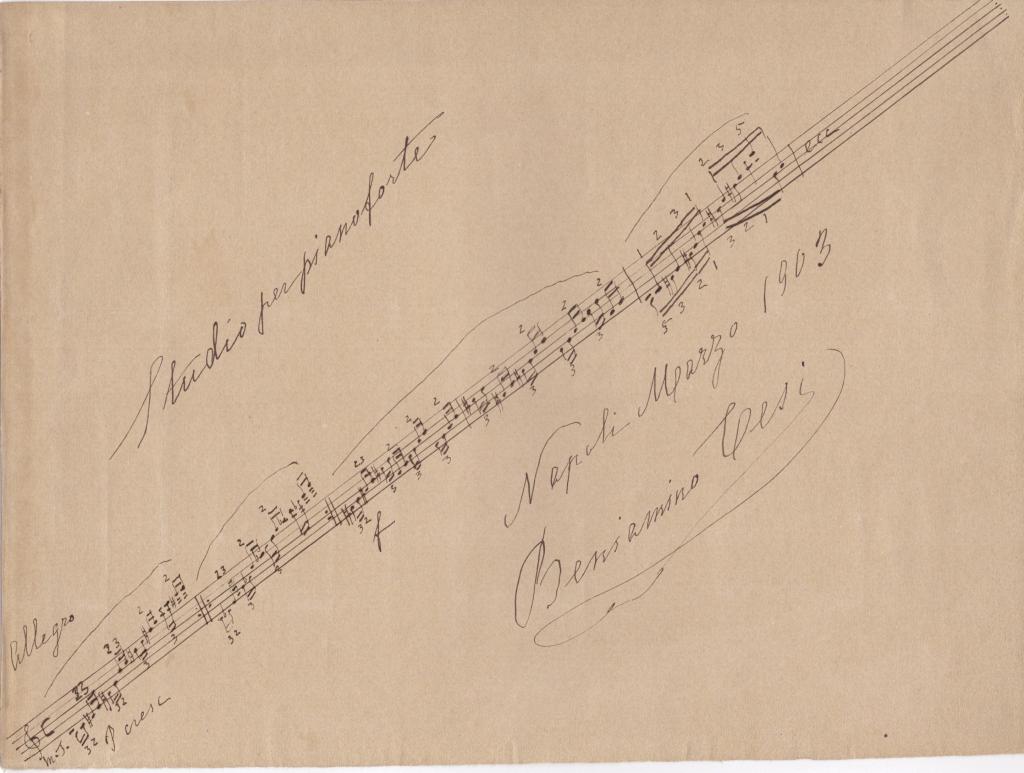 Studio per pianoforte
Allegro
m.s.
P cresc
f
ecc
Napoli Marzo 1903
Beniamino Cesi